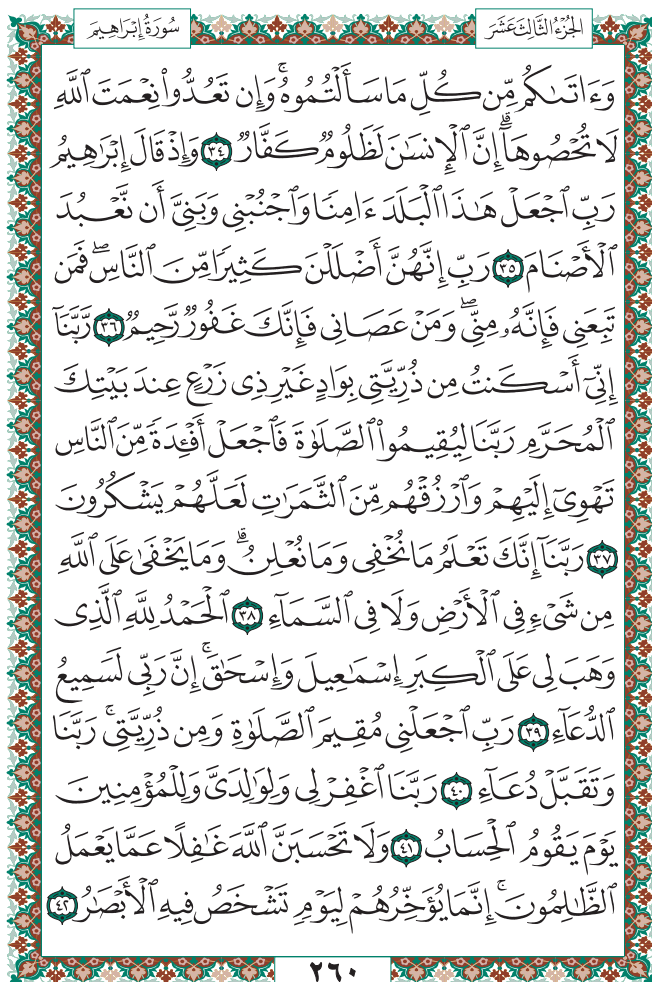 الجُزْءُ الثَّالِثَ عَشَرَ
سُورَةُ إِبْرَاهِيم
وَءَاتَىٰكُم مِّن كُلِّ مَا سَأَلْتُمُوهُۚ وَإِن تَعُدُّوا۟ نِعْمَتَ ٱللَّهِ
لَا تُحْصُوهَآۗ إِنَّ ٱلْإِنسَـٰنَ لَظَلُومٌ كَفَّارٌ ٣٤ وَإِذْ قَالَ إِبْرَٰهِيمُ
رَبِّ ٱجْعَلْ هَـٰذَا ٱلْبَلَدَ ءَامِنًا وَٱجْنُبْنِى وَبَنِىَّ أَن نَّعْبُدَ
ٱلْأَصْنَامَ ٣٥ رَبِّ إِنَّهُنَّ أَضْلَلْنَ كَثِيرًا مِّنَ ٱلنَّاسِۖ فَمَن
تَبِعَنِى فَإِنَّهُۥ مِنِّىۖ وَمَنْ عَصَانِى فَإِنَّكَ غَفُورٌ رَّحِيمٌ ٣٦ رَّبَّنَآ
إِنِّىٓ أَسْكَنتُ مِن ذُرِّيَّتِى بِوَادٍ غَيْرِ ذِى زَرْعٍ عِندَ بَيْتِكَ
ٱلْمُحَرَّمِ رَبَّنَا لِيُقِيمُوا۟ ٱلصَّلَوٰةَ فَٱجْعَلْ أَفْـِٔدَةً مِّنَ ٱلنَّاسِ
تَهْوِىٓ إِلَيْهِمْ وَٱرْزُقْهُم مِّنَ ٱلثَّمَرَٰتِ لَعَلَّهُمْ يَشْكُرُونَ
٣٧ رَبَّنَآ إِنَّكَ تَعْلَمُ مَا نُخْفِى وَمَا نُعْلِنُۗ وَمَا يَخْفَىٰ عَلَى ٱللَّهِ
مِن شَىْءٍ فِى ٱلْأَرْضِ وَلَا فِى ٱلسَّمَآءِ ٣٨ ٱلْحَمْدُ لِلَّهِ ٱلَّذِى
وَهَبَ لِى عَلَى ٱلْكِبَرِ إِسْمَـٰعِيلَ وَإِسْحَـٰقَۚ إِنَّ رَبِّى لَسَمِيعُ
ٱلدُّعَآءِ ٣٩ رَبِّ ٱجْعَلْنِى مُقِيمَ ٱلصَّلَوٰةِ وَمِن ذُرِّيَّتِىۚ رَبَّنَا
وَتَقَبَّلْ دُعَآءِ ٤٠ رَبَّنَا ٱغْفِرْ لِى وَلِوَٰلِدَىَّ وَلِلْمُؤْمِنِينَ
يَوْمَ يَقُومُ ٱلْحِسَابُ ٤١ وَلَا تَحْسَبَنَّ ٱللَّهَ غَـٰفِلًا عَمَّا يَعْمَلُ
ٱلظَّـٰلِمُونَۚ إِنَّمَا يُؤَخِّرُهُمْ لِيَوْمٍ تَشْخَصُ فِيهِ ٱلْأَبْصَـٰرُ ٤٢
٢٦٠